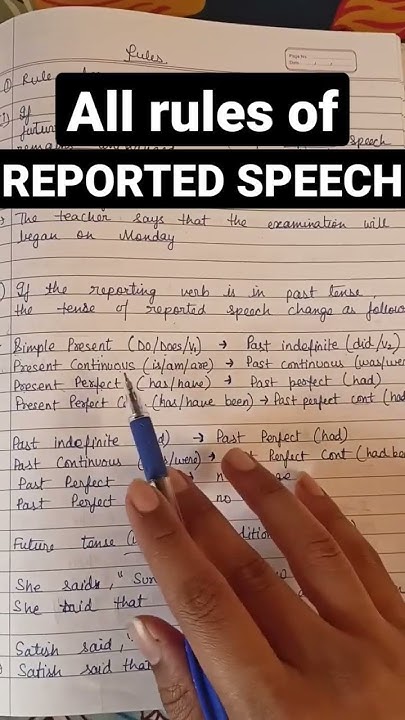 Rules
Page No.
Date
Rule
All rules of
REPORTED SPEECH
If
speech
The teacher says that the examination will
began on Monday
If the reporting verb is in past tense
the tense of reported speech change as follow
Simple Present (Do/Does/V₁) → Past indefinite (did/V₂)
Present Continuous (is/am/are) → Past continuous (was/wer
Present Perfect (has/have) → Past perfect (had)
Present Perfect C (has/have been) → Past perfect cont (had
Past indefinite d) → Past Perfect (had)
Past Continuous /were) → Perfect Cont (had be
Past Perfect n ge
Past Perfect no
Future tense dition
She said, "Sun
She said that
Satish said, "
Satish said that